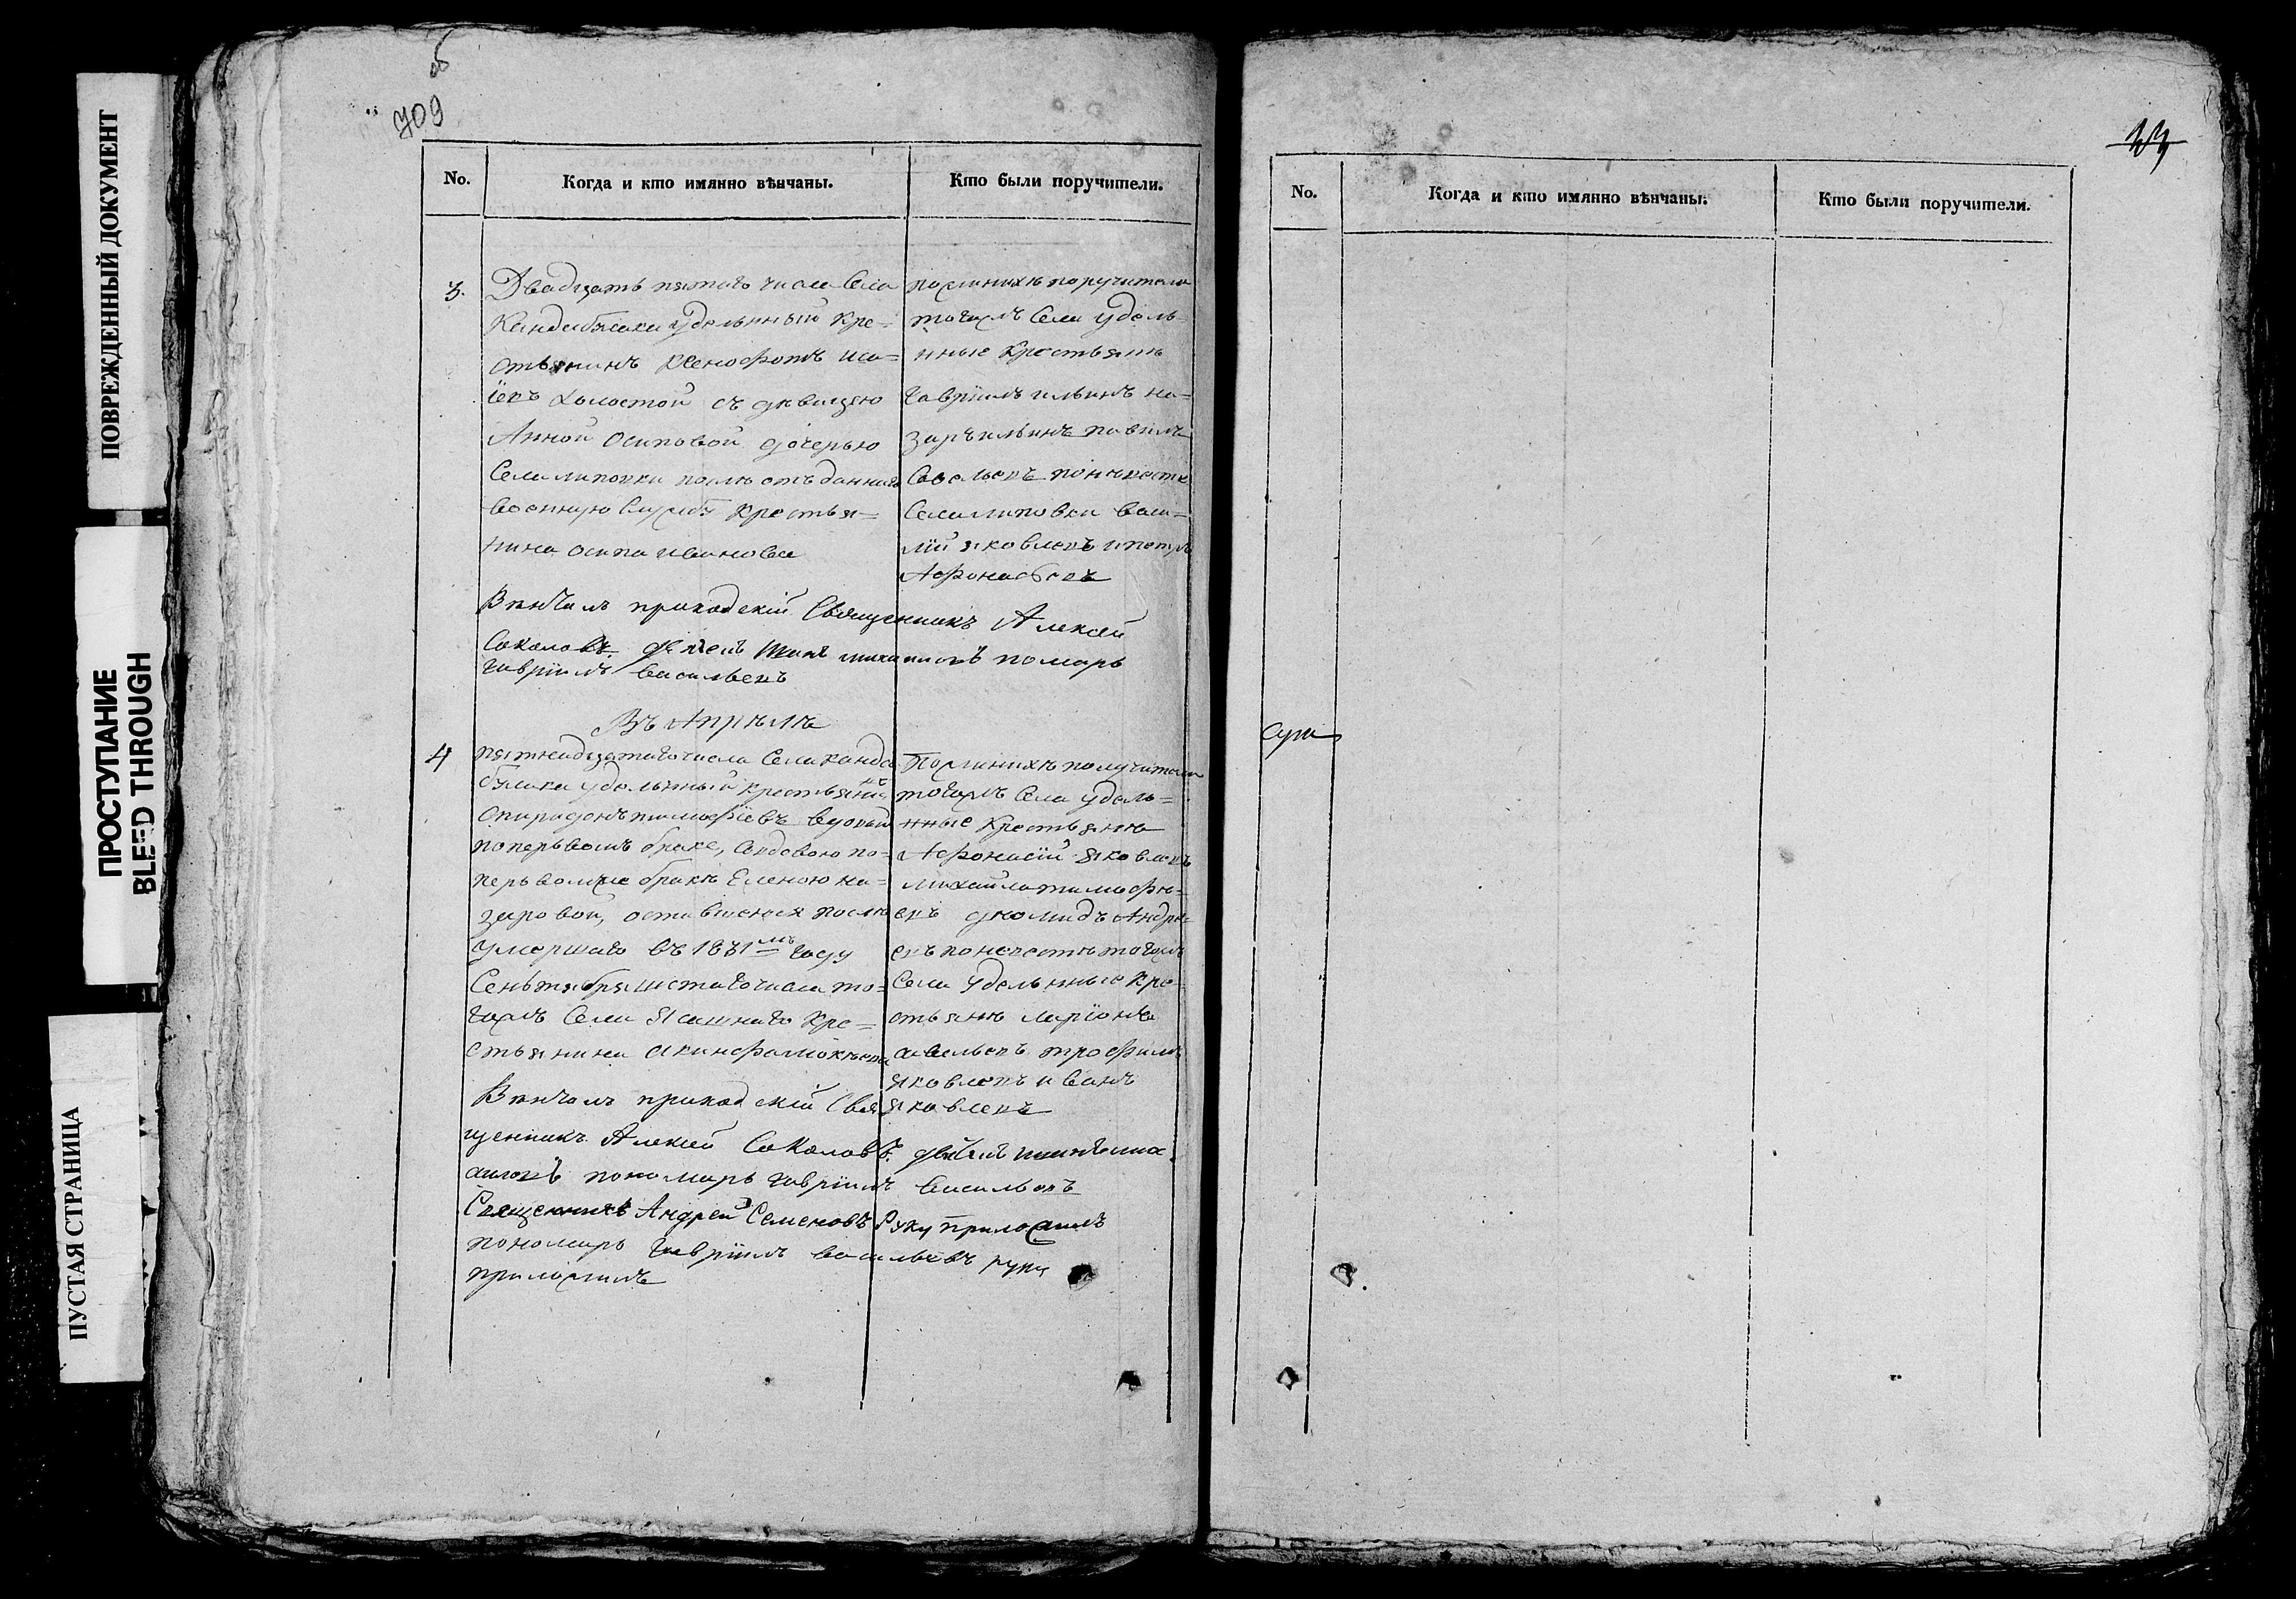 ПОВРЕЖДЕННЫЙ ДОКУМЕНТ
ПРОСТУПАНИЕ
BLEED THROUGH
ПУСТАЯ СТРАНИЦА
об
709
No.
Когда и кто имянно вѣнчаны.
Кто были поручители.
3.
Двадцать пятаго числа Села
удельный кре=
стьянинъ Ксенофотъ Иса=
iевъ холостой съ дѣвицею
Анной Осиповой дочерью
Села липовки послѣ отъданнаго
военную службу крестья=
нина осипа иванова
по женихѣ поручители
тогожъ Села удель=
нные крестьяне
гаврiилъ ильинъ на=
заръ ильинъ павилъ
Савельевъ по невѣсте
Села липовки васи=
лiй яковлевъ и петръ
Афонасьевъ
Вѣнчалъ приходскiй Священникъ Алексей
Соколовъ. дьячекъ помарь
гаврiилъ васильевъ
Въ Апрѣлѣ
4
пятнадцатаго числа Села канда
удельнный крестьянинъ
Спиридонъ тимофiевъ вдовый
поперьвомъ браке, Сovдовою по=
перьвомже бракѣ Еленою на=
заровой, оставшеюся послѣ
умершаго въ 1831мъ году
Сеньтября шестаго числа то=
гожъ Села Ясашнаго кре=
стьянина
По женихѣ получители
тогожъ Села удель=
нные крестьяне
Афонасiй яковлевъ
михайла тимофѣ=
евъ диомидъ Андре=
евъ по невестѣ тогожъ
Села удельнные кре=
стьяне ларiонъ
савельевъ трофимъ
яковлевъ иванъ
яковлевъ
Вѣнчалъ приходскiй Свя
щенникъ Алексей Соколовъ. дьячекъ
пономарь гаврiилъ васильевъ
Священникъ Андрей Семеновъ Руку приложилъ
пономарь гаврiилъ васильевъ руку
приложилъ
No.
Когда и кто имянно вѣнчаны.
Кто были поручители.